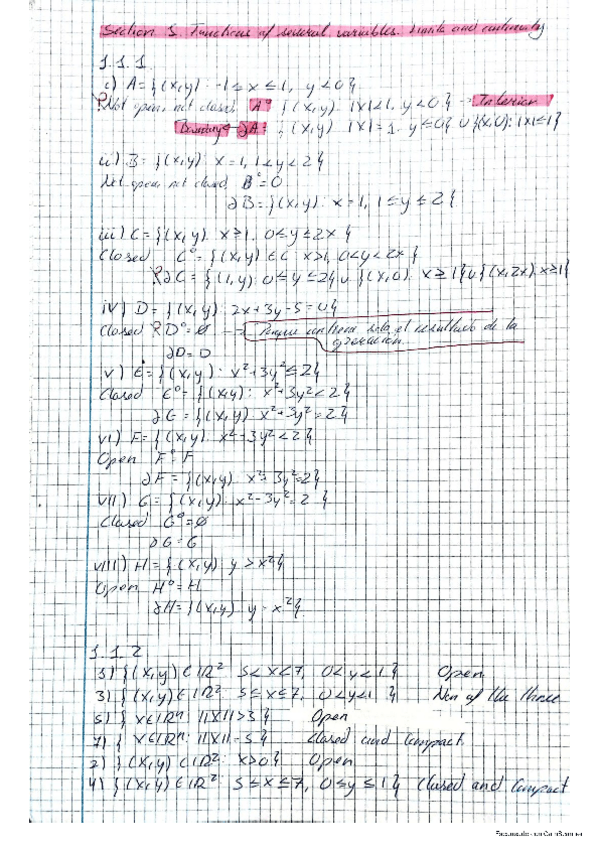 Section 1 Functions of several variables. Limits and continuity
1.1.1
i) A = {(x,y): -1 ≤ x ≤ 1, y < 0}
? Not open, not closed A° {(x,y): |x|<1, y<0} → Interior
Boundary ← ∂A = {(x,y): |x|=1, y≤0} ∪ {(x,0): |x|≤1}
ii) B = {(x,y): x=1, 1<y<2}
Not open, not closed B°=0
∂B = {(x,y): x=1, 1≤y≤2}
iii) C = {(x,y): x≥1, 0≤y≤2x}
Closed C° = {(x,y) ∈ C: x>1, 0<y<2x}
? ∂C = {(1,y): 0≤y≤2} ∪ {(x,0): x≥1} ∪ {(x,2x), x≥1}
iv) D = {(x,y): 2x+3y-5=0}
Closed ? D°=∅ → Porque contiene solo el resultado de la
ecuación.
∂D=D
v) E = {(x,y): x²+3y²≤2}
Closed E° = {(x,y): x²+3y²<2}
∂E = {(x,y): x²+3y²=2}
vi) F = {(x,y): x²-3y²<2}
Open F°=F
∂F = {(x,y): x²-3y²=2}
vii) G = {(x,y): x²-3y²=2}
Closed G°=∅
∂G=G
viii) H = {(x,y): y>x²}
Open H°=H
∂H = {(x,y): y=x²}
1.1.2
1) {(x,y) ∈ ℝ²: 5<x<7, 0<y<1} Open
3) {(x,y) ∈ ℝ²: 5≤x≤7, 0<y<1} Non of the three
5) { x ∈ ℝⁿ: ||x||>3 } Open
7) { x ∈ ℝⁿ: ||x||=5 } Closed and Compact
2) {(x,y) ∈ ℝ²: x>0} Open
4) {(x,y) ∈ ℝ²: 5≤x≤7, 0≤y≤1} Closed and Compact